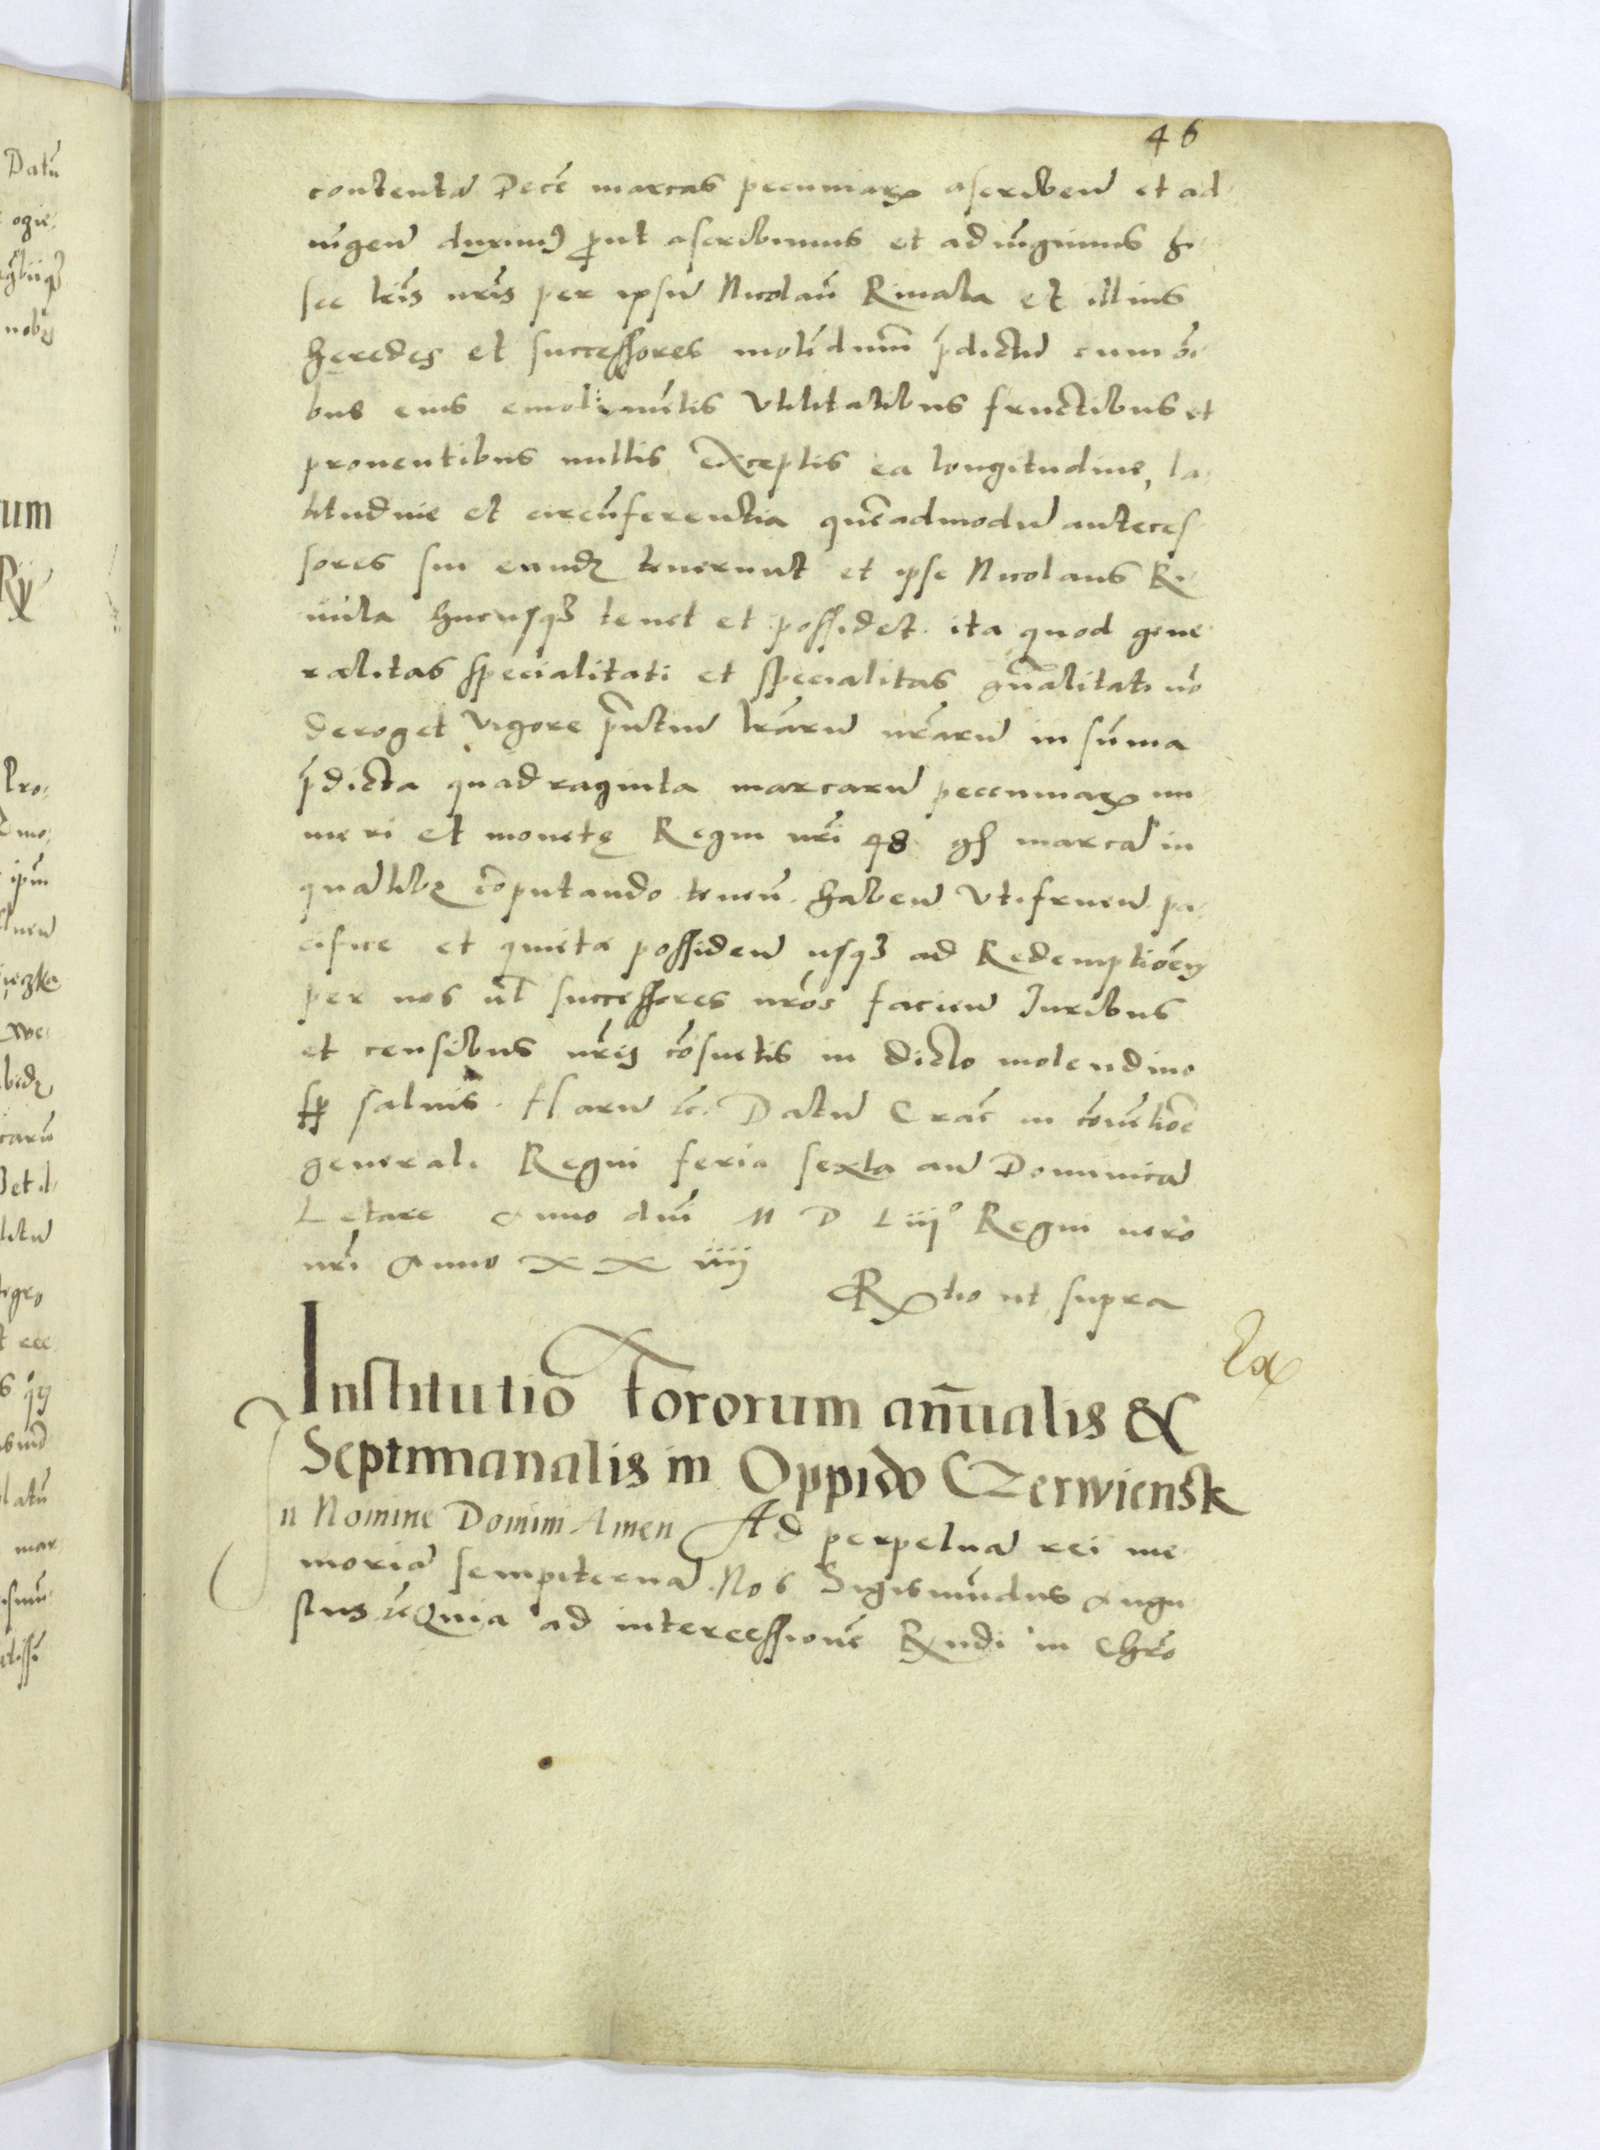 46
contentā Decē marcas pecuniaꝝ ascribenđ et ad-
iūgenđ duximꝰ ꝓut ascribimus et adiūgimus hi-
sce lr̄is nr̄is per ipsū Nicolaū Riuala et illius
heredes et successores molēdinū p̄dictū cum oı̄-
bus eius emolimētis Vtilitatibus fructibus et
prouentibus nullis exceptis ea longitudine, la-
titudine et circūferentia quēadmodū anteces-
sores sui eundē tenerunt et ipse Nicolaus Ri-
uula hucusqꝫ tenet et possidet. ita quod gene-
ralitas specialitati et specialitas gn̄alitati nō
deroget Vigore p̄ntiū lr̄arū nr̄arū in sūma
p̄dicta quadraginta marcarū peccuniaꝝ nu-
meri et monetę Regni nr̄i 48 gṡ marcā in
quālibꝫ cōputando tenenđ. habenđ Vtifruenđ pa-
cifice et quiete possidenđ usqꝫ ad Redemptiōem
per nos ul̄ successores nr̄os faciend Iuribus
et censibus nr̄is cōsuetis in dicto molendino
sꝑ saluis. Harū ꝛc̄. Datū Crac̄ in cōuētiōe
generali Regni feria sexta anē Dominicā
Letare Anno dn̄i M D Liiijº Regni uero
nr̄i Anno XX iiij
Rꝝtio ut supra
Institutio Fororum an̄ualis &
Septimanalis in Oppido Czerwiensk
In Nomine Domini Amen Ad perpetuā rei me-
moriā sempiternā. Nos Sigismūdus Augu-
stus ꝛc̄ Quia ad intercessionē Rꝝndi in Chr̄o